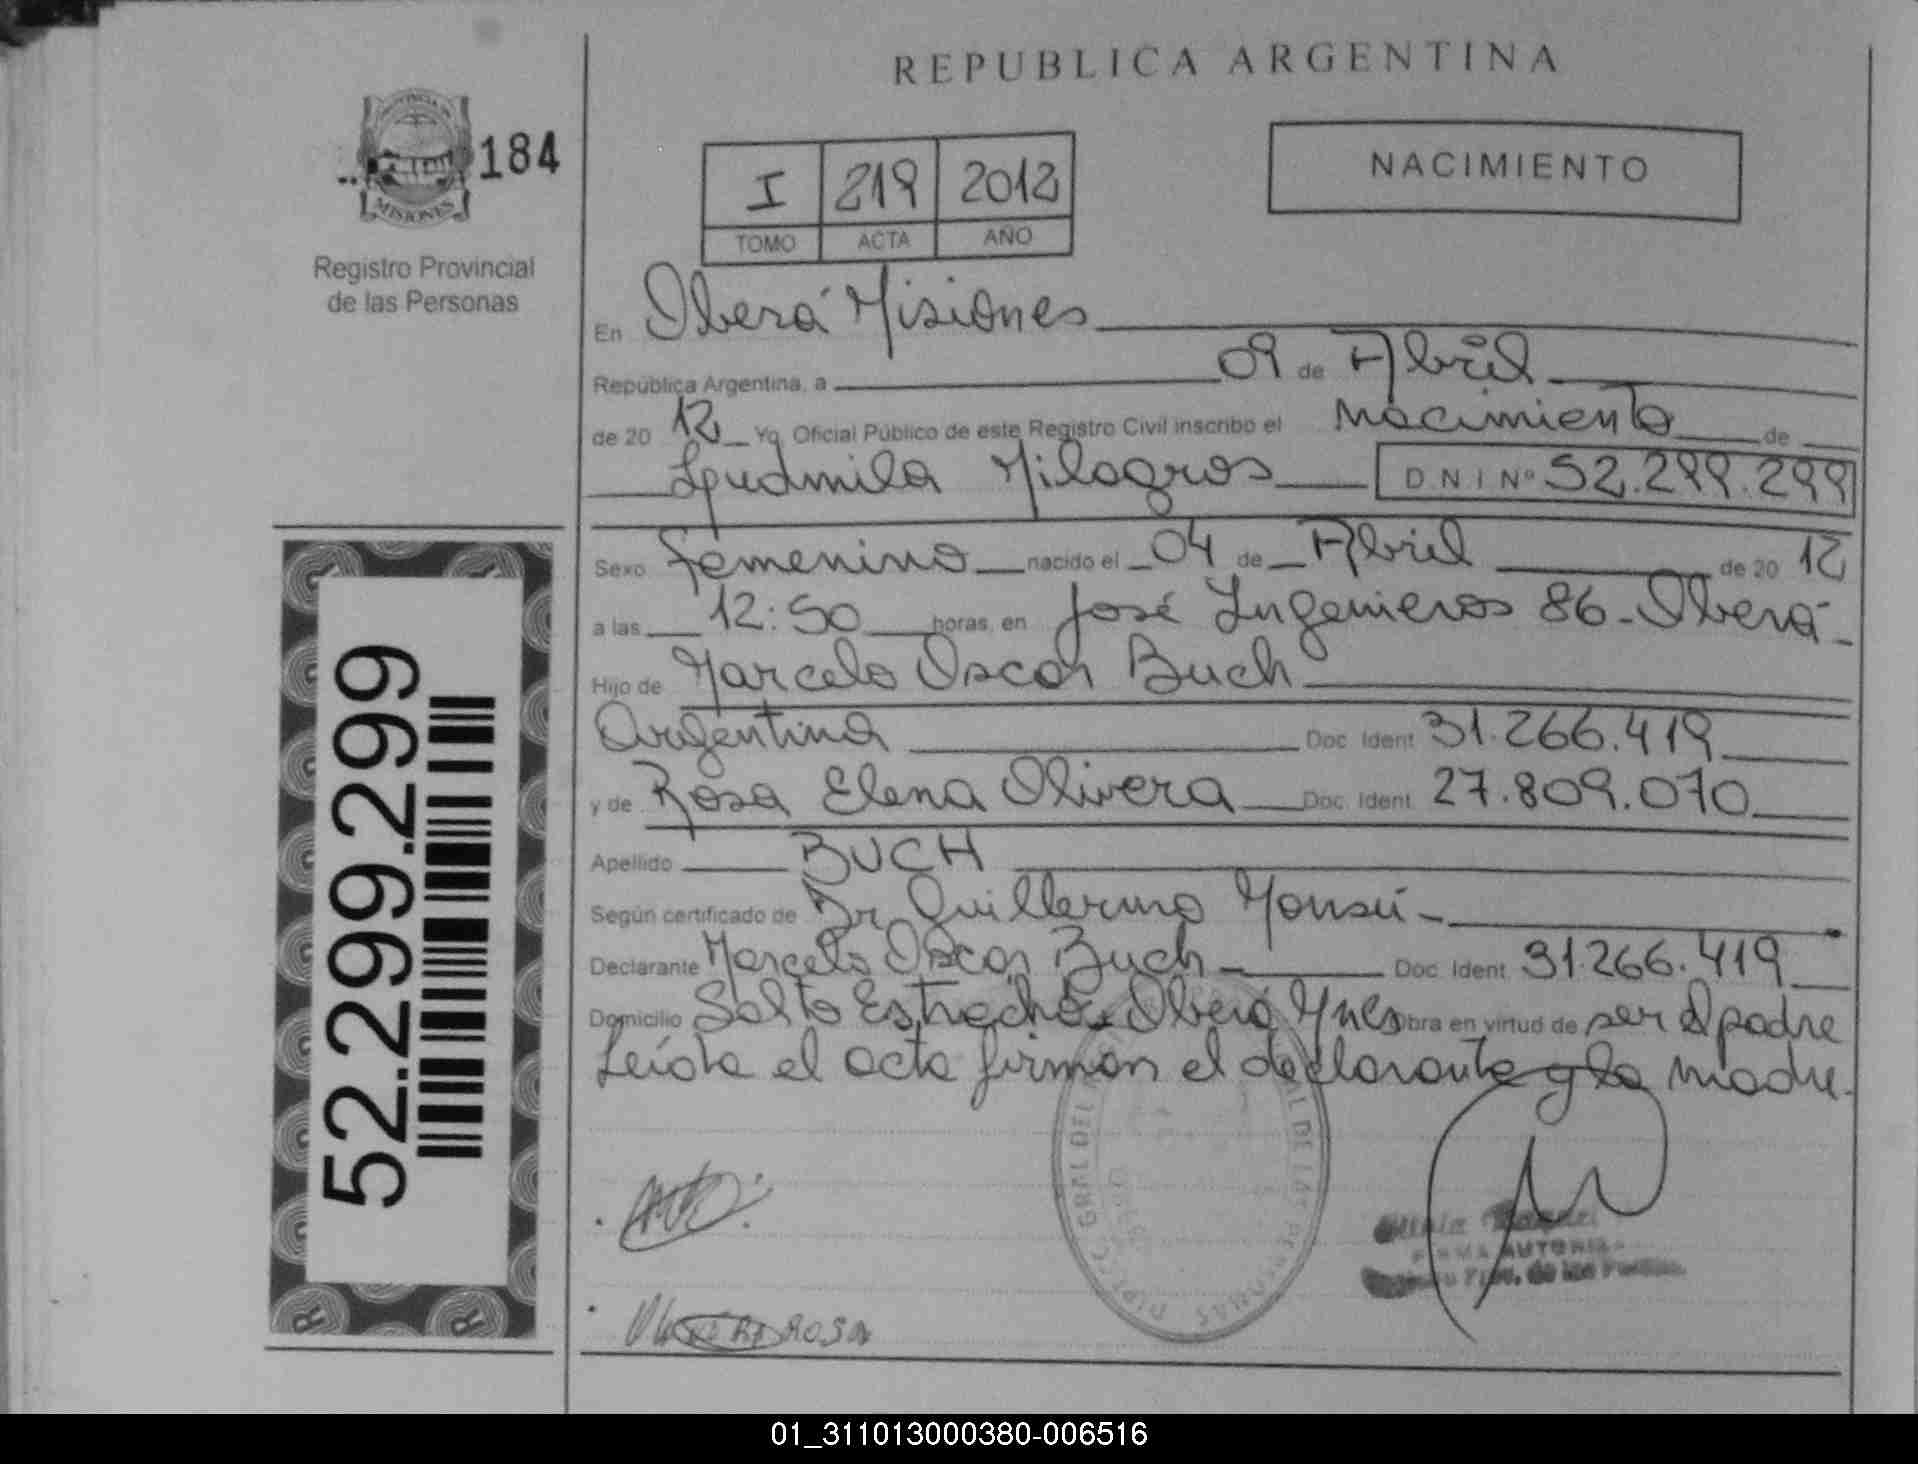 REPUBLICA ARGENTINA
PROVINCIA DE
MISIONES
184
Registro Provincial
de las Personas
I 219 2012
TOMO ACTA AÑO
NACIMIENTO
En Oberá Misiones
República Argentina, a 09 de Abril
de 20 12 Yo, Oficial Público de este Registro Civil inscribo el Nacimiento de
Ludmila Milagros D N I Nº 52.299.299
Sexo femenino nacido el 04 de Abril de 20 12
a las 12:50 horas, en José Ingenieros 86 - Oberá -
Hijo de Marcelo Oscar Buch
Argentina Doc. Ident. 31.266.419
y de Rosa Elena Olivera Doc. Ident. 27.809.070
Apellido BUCH
Según certificado de Dr Guillermo Monsú -
Declarante Marcelo Oscar Buch - Doc. Ident. 31.266.419
Domicilio Salto Estrecho - Oberá Mnes Obra en virtud de ser el padre
Leída el acta firman el declarante y la madre.
52.299.299
R R
GRAL DEL
DE LAS PERSONAS
FIRMA AUTORIZ
Prov. de las
ROSA
01_311013000380-006516